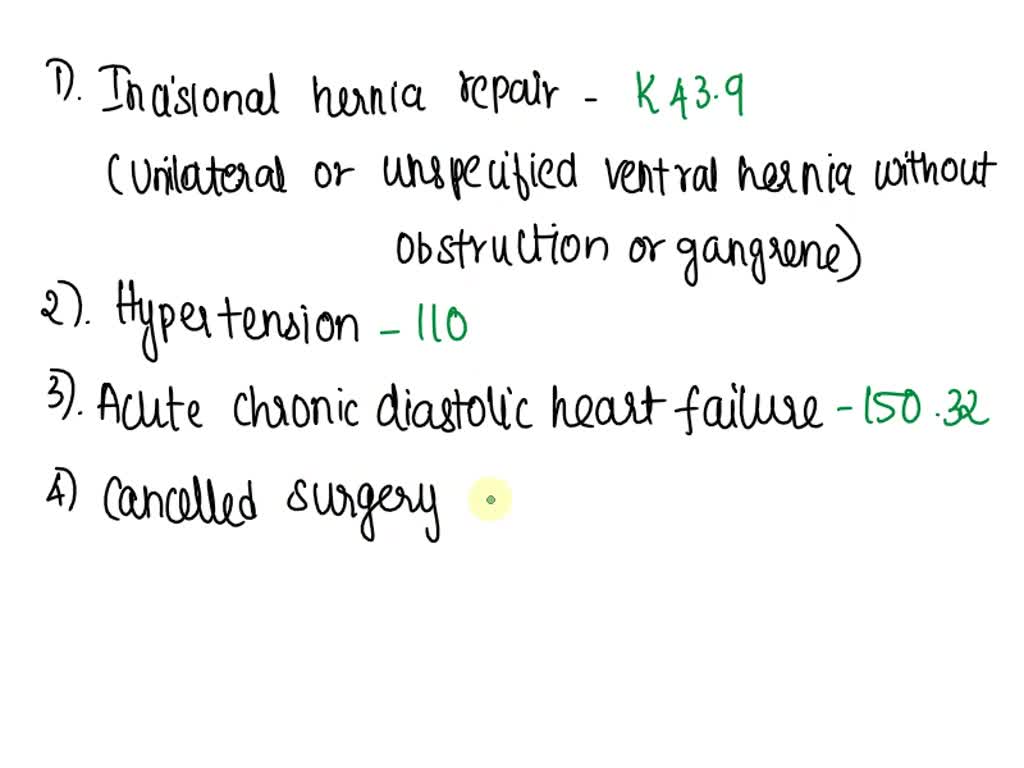 1). Incisional hernia repair - K43.9
(Unilateral or unspecified ventral hernia without
obstruction or gangrene)
2). Hypertension - 110
3). Acute chronic diastolic heart failure - 150.32
4) Cancelled surgery